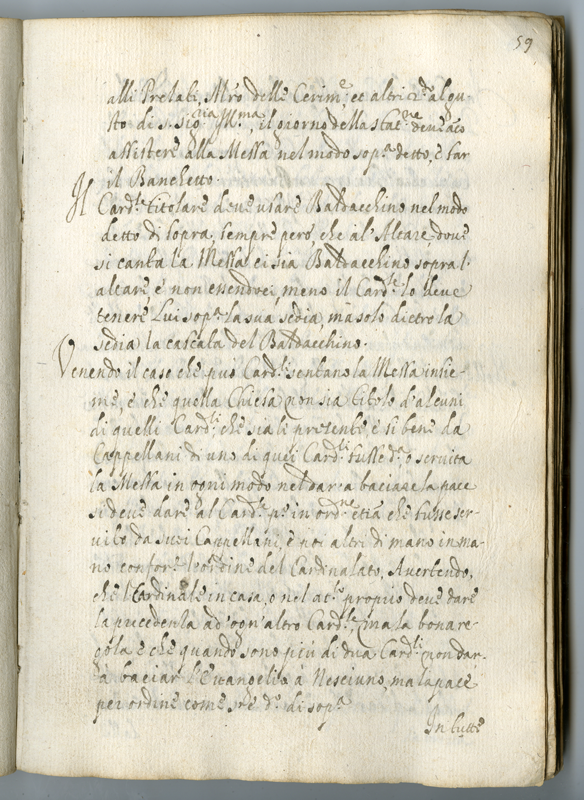 59
alli Prelati, Mro delle Cerim.e et altri à al gu
sto di S. Sig.ria Ill.ma, il giorno della Staz.ne deue
assistere alla Messa nel modo sop.a detto, e far
il Banchetto.
Il Card.le titolare deue usare Baldacchino nel modo
detto di sopra sempre però, che al' Altare, doue
si canta la Messa ci sia Baldacchino sopra l'
altare, e non essendoci, meno il Card.le lo deue
tenere Lui sop.a la sua sedia, ma solo dietro la
sedia la cascata del Baldacchino.
Venendo il caso che più Card.li sentano la Messa insie-
me, e che quella Chiesa non sia titolo d'alcuni
di quelli Card.li che sia li presente, e si bene da
Cappellani di uno di queli Card.li fusse d.a ò seruita
la Messa in ogni modo nel dar' a baciare la pace
si deue dare al Card.le p.o in ord.ne etià che fusse ser-
uito da suoi Cappellani, e poi altri di mano in ma-
no confor.e l'ordine del Cardinalato, Auertendo,
che l'Cardinale in casa, o nel at.o proprio deue dare
la precedenza ad' ogn' altro Card.le, ma la bona re-
gola e che quando sono più di dua Card.li non dar-
à baciar l'Euangelio à Nesciuno, ma la pace
per ordine come s'è d.o di sop.a
In tutte